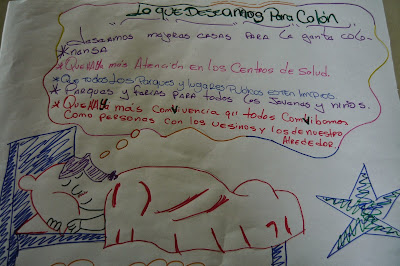 Lo que Deseamos Para Colón
Deseamos mejores casas para la gente colo-
*nensa
*Que haya más Atención en los Centros de Salud.
*Que todos los Parques y lugares Publicos esten limpios.
*Parques y ferias para todos los Jovenes y niños.
*Que haya más convivencia qu todos convibamos
como personas con los vesinos y los de nuestro
Alrededor.